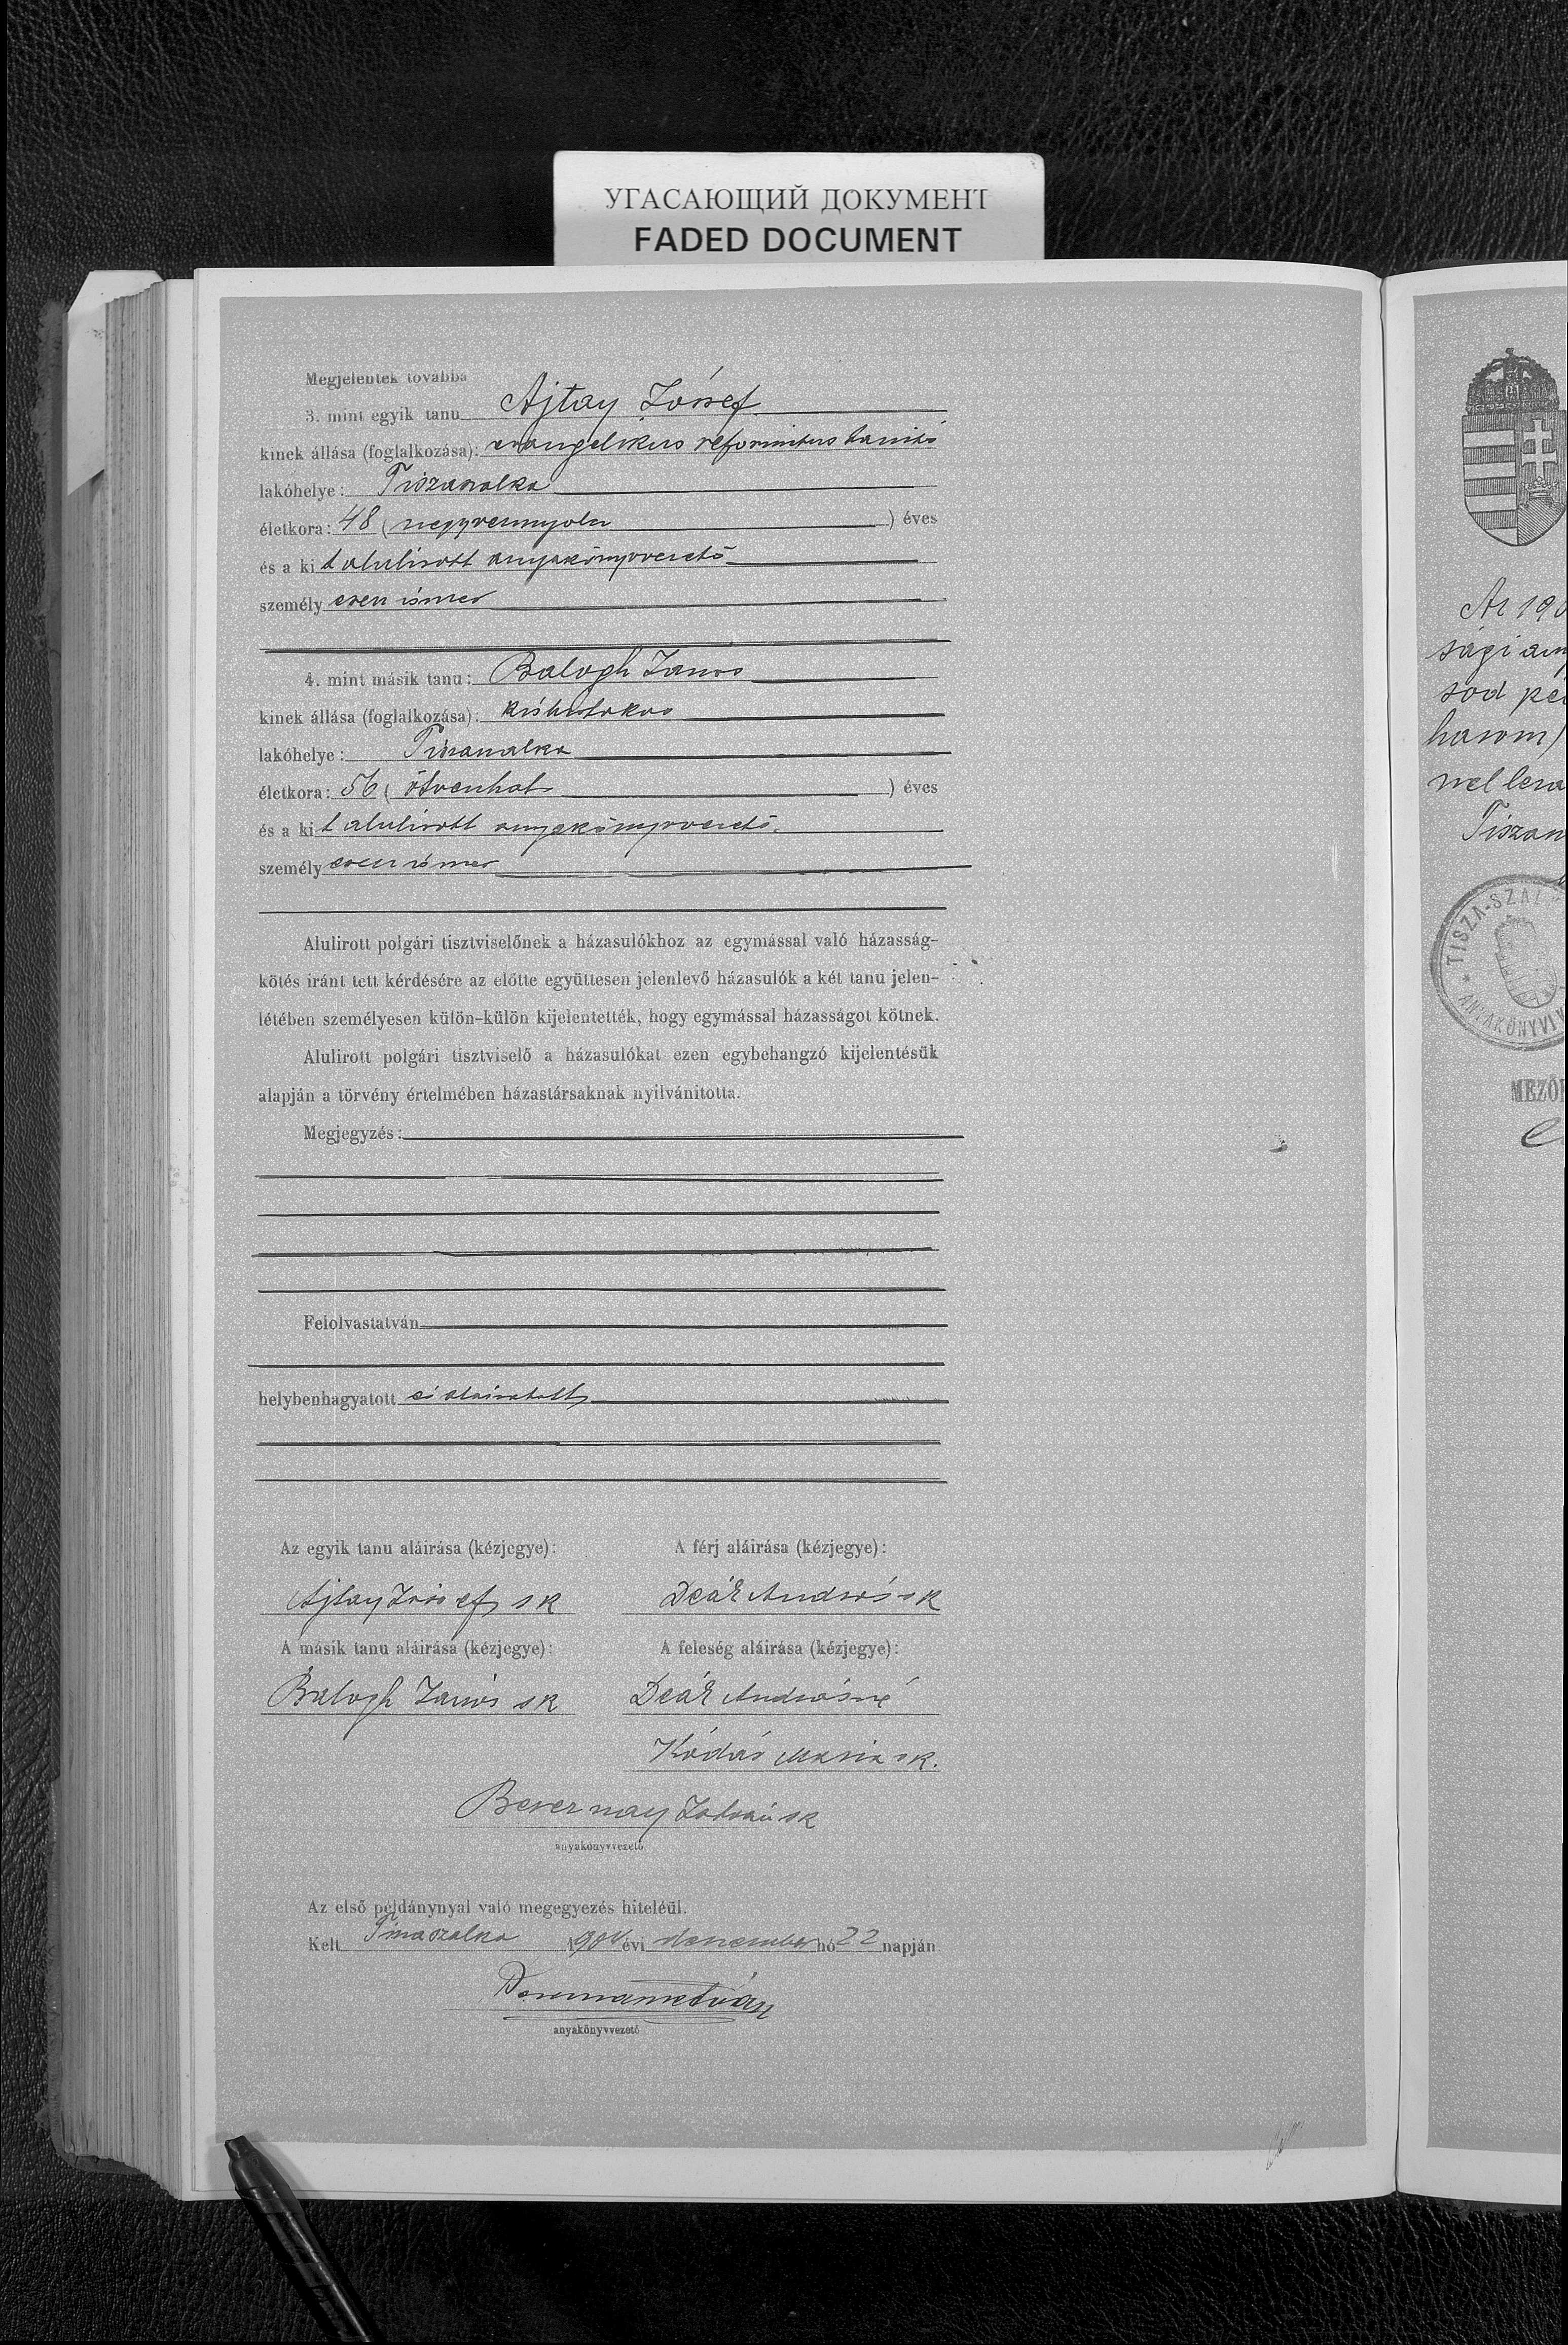 УГАСАЮЩИЙ ДОКУМЕНТ
FADED DOCUMENT
Megjelentek továbbá
3. mint egyik tanu Ajtay József
kinek állása (foglalkozása): evangelikus református tanító
lakóhelye: Tiszaszalka
életkora: 48 (negyvennyolc) éves
és a kit alulirott anyakönyvvezető
személyesen ismer
4. mint másik tanu: Balogh János
kinek állása (foglalkozása): kisbirtokos
lakóhelye: Tiszaszalka
életkora: 56 (ötvenhat) éves
és a kit alulirott anyakönyvvezető
személyesen ismer
Alulirott polgári tisztviselőnek a házasulókhoz az egymással való házasság-
kötés iránt tett kérdésére az előtte együttesen jelenlevő házasulók a két tanu jelen-
létében személyesen külön-külön kijelentették, hogy egymással házasságot kötnek.
Alulirott polgári tisztviselő a házasulókat ezen egybehangzó kijelentésük
alapján a törvény értelmében házastársaknak nyilvánitotta.
Megjegyzés:
Felolvastatván
helybenhagyatott és aláiratott
Az egyik tanu aláirása (kézjegye): A férj aláirása (kézjegye):
Ajtay József sk Deák András sk
A másik tanu aláirása (kézjegye): A feleség aláirása (kézjegye):
Balogh János sk Deák Andrásné
Kádás Mária sk.
István sk
anyakönyvvezető
Az első példánynyal való megegyezés hiteléül.
Kelt Tiszaszalka évi december hó 22 napján
anyakönyvvezető
Az 190
sági any
sod pél
három)
vel lezá
Tiszasz
TISZA-SZAL
ANYAKÖNYVI K
MEZŐ